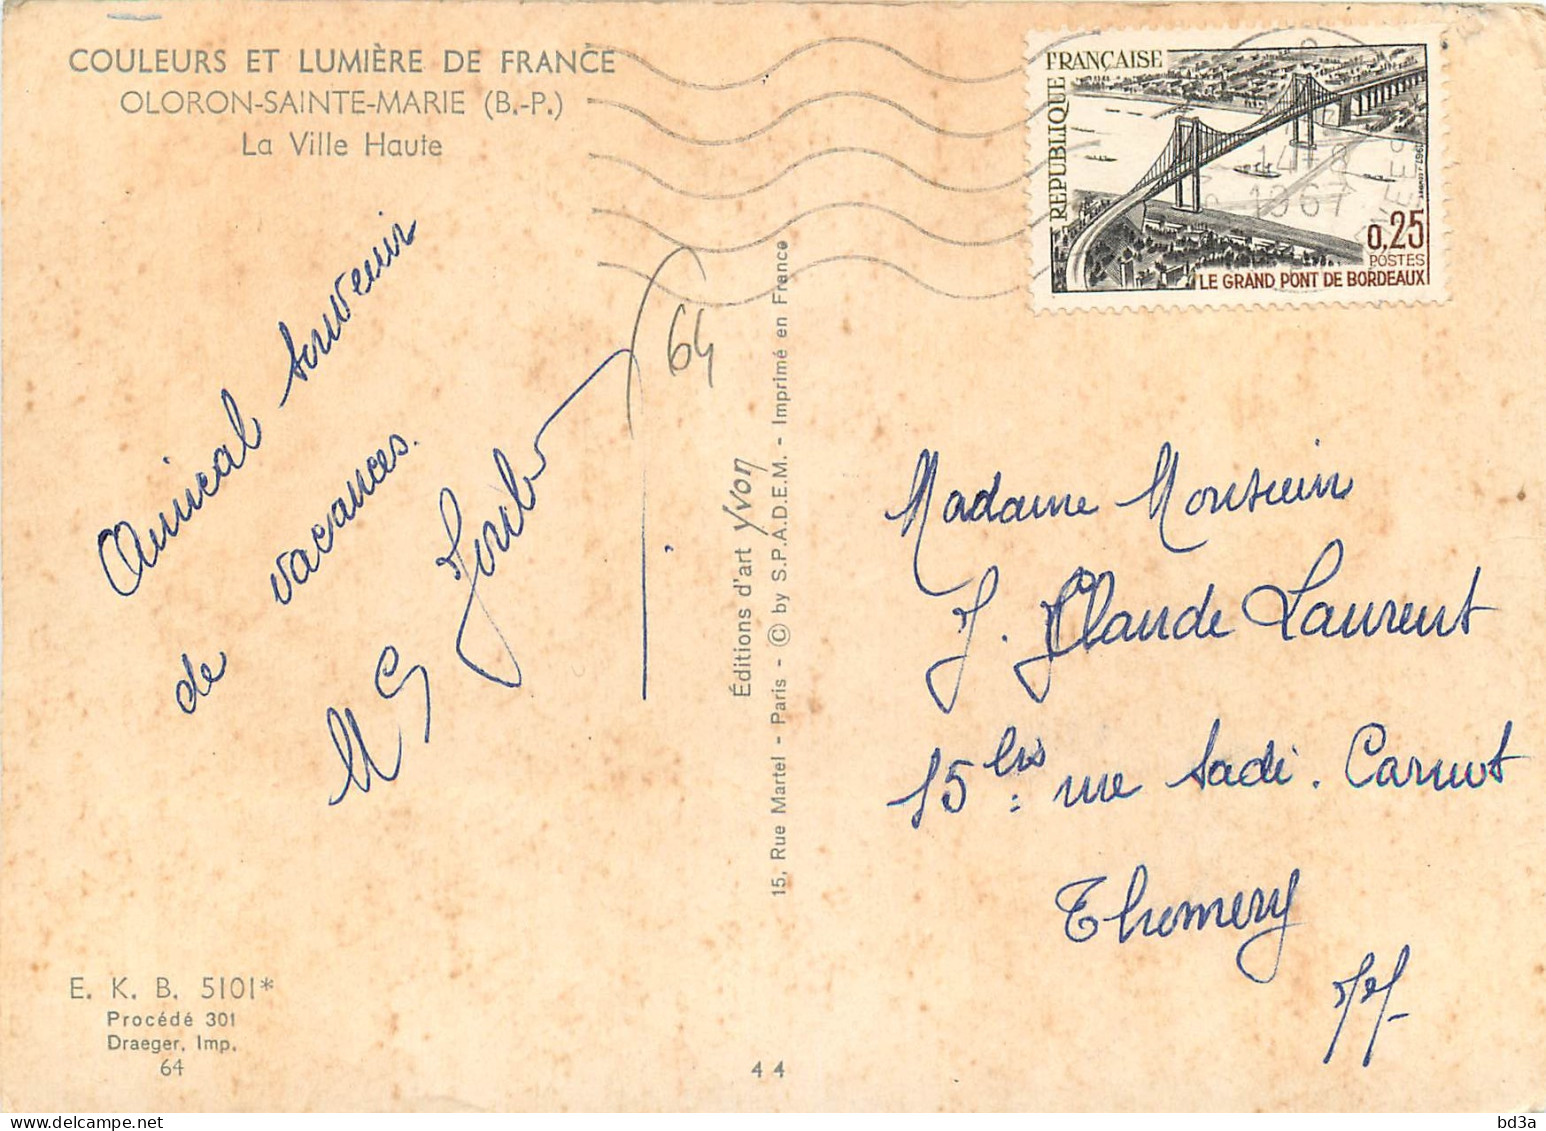 COULEURS ET LUMIÈRE DE FRANCE
OLORON-SAINTE-MARIE (B.-P.)
La Ville Haute
RÉPUBLIQUE FRANÇAISE
14-8
1967
0,25
POSTES
LE GRAND PONT DE BORDEAUX
Amical souvenir
de vacances.
64
Éditions d'art Yvon
15, Rue Martel - Paris - © by S.P.A.D.E.M. - Imprimé en France
Madame Monsieur
J. Claude Laurent
15 bis rue Sadi. Carnot
Thomery
E. K. B. 5101*
Procédé 301
Draeger, Imp.
64
44
bd3a